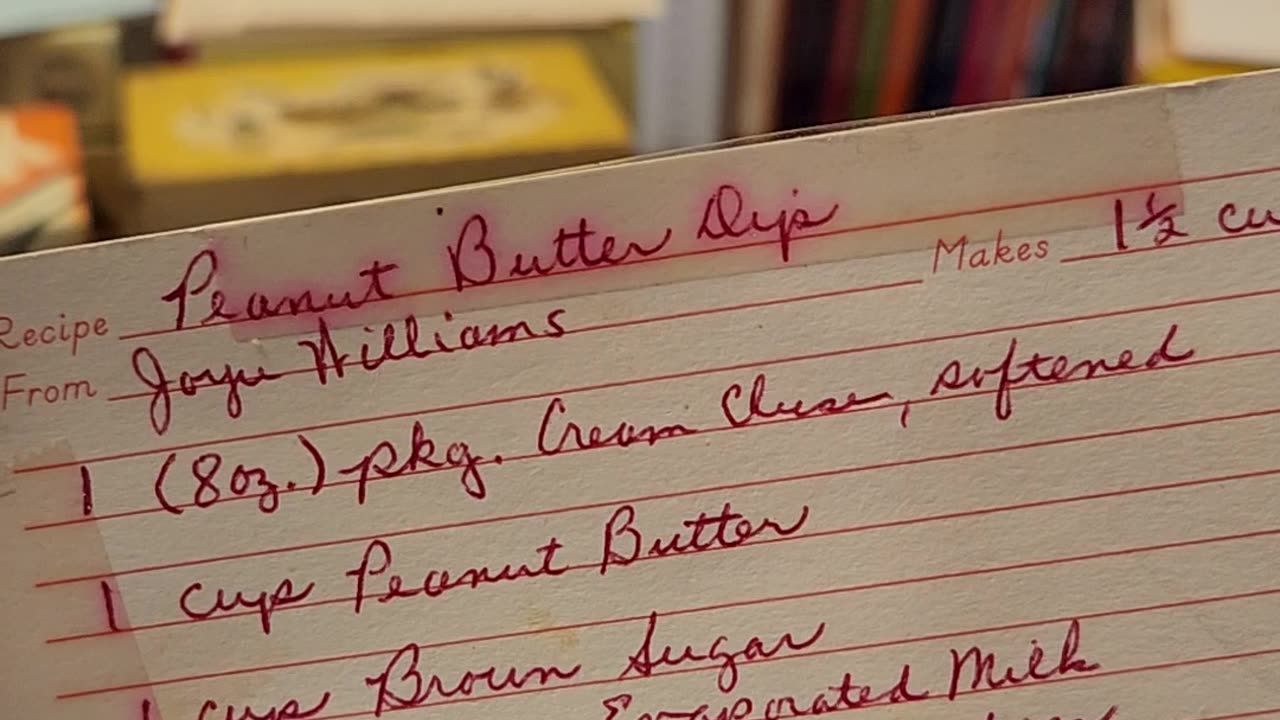 Recipe Peanut Butter Dip Makes 1 1/2 cu
From Joyce Williams
1 (8oz.) pkg. Cream Cheese, softened
1 cup Peanut Butter
1 cup Brown Sugar
Evaporated Milk